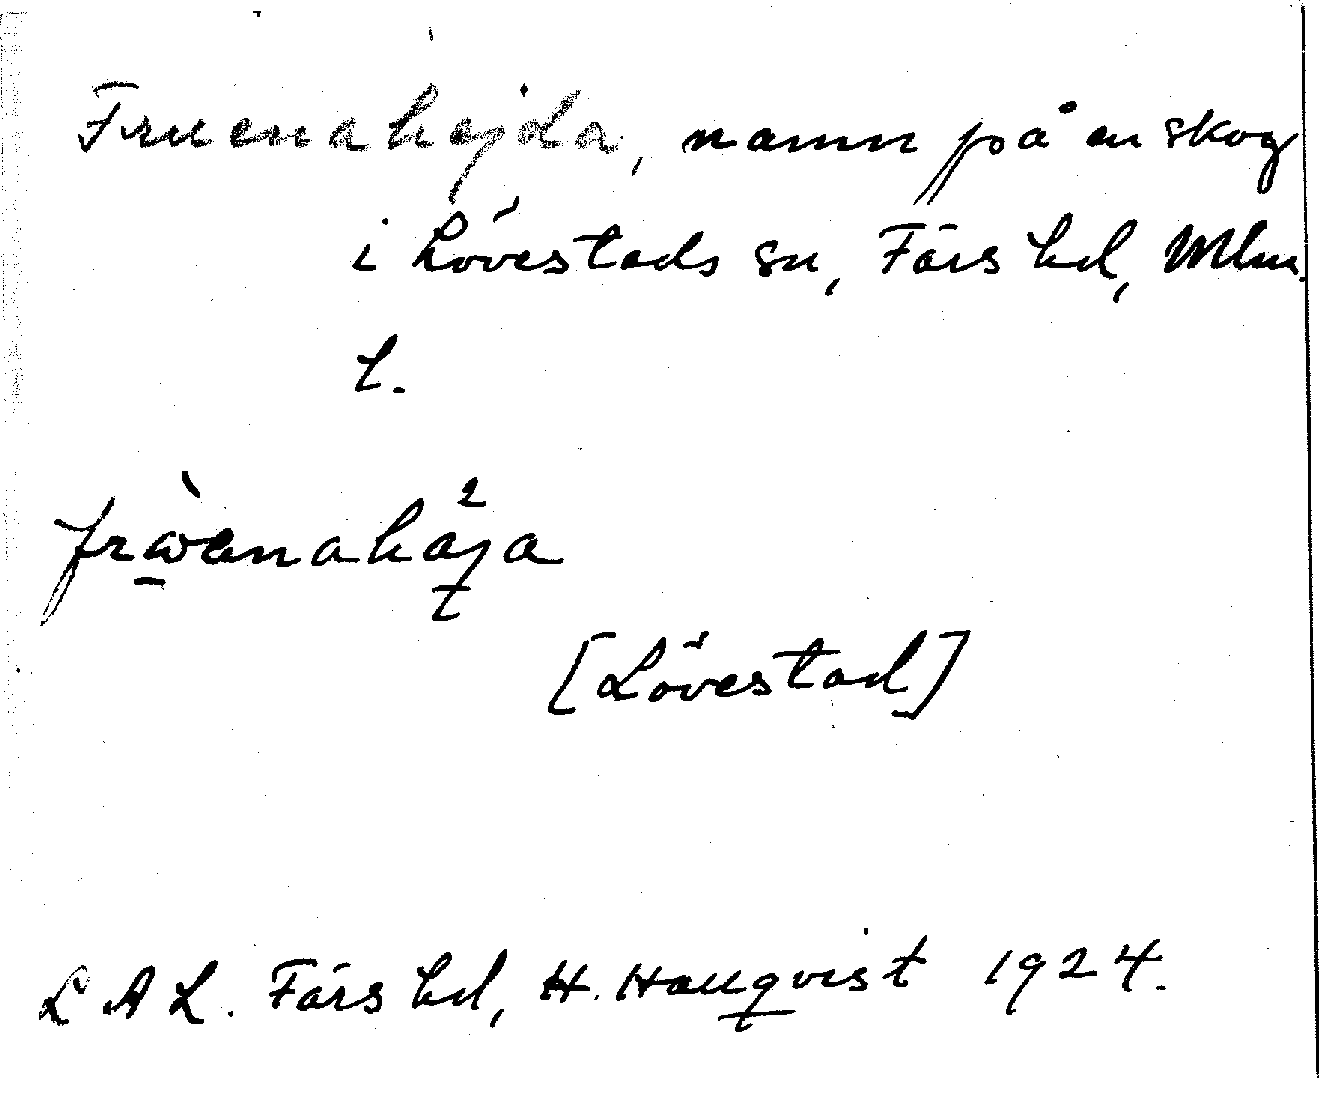 Fruenahejda, namn på en skog
i Lövestads sn, Färs hd, Mlm.
l.
[Lövestad]
L A L. Färs hd, H. Hallqvist 1924.